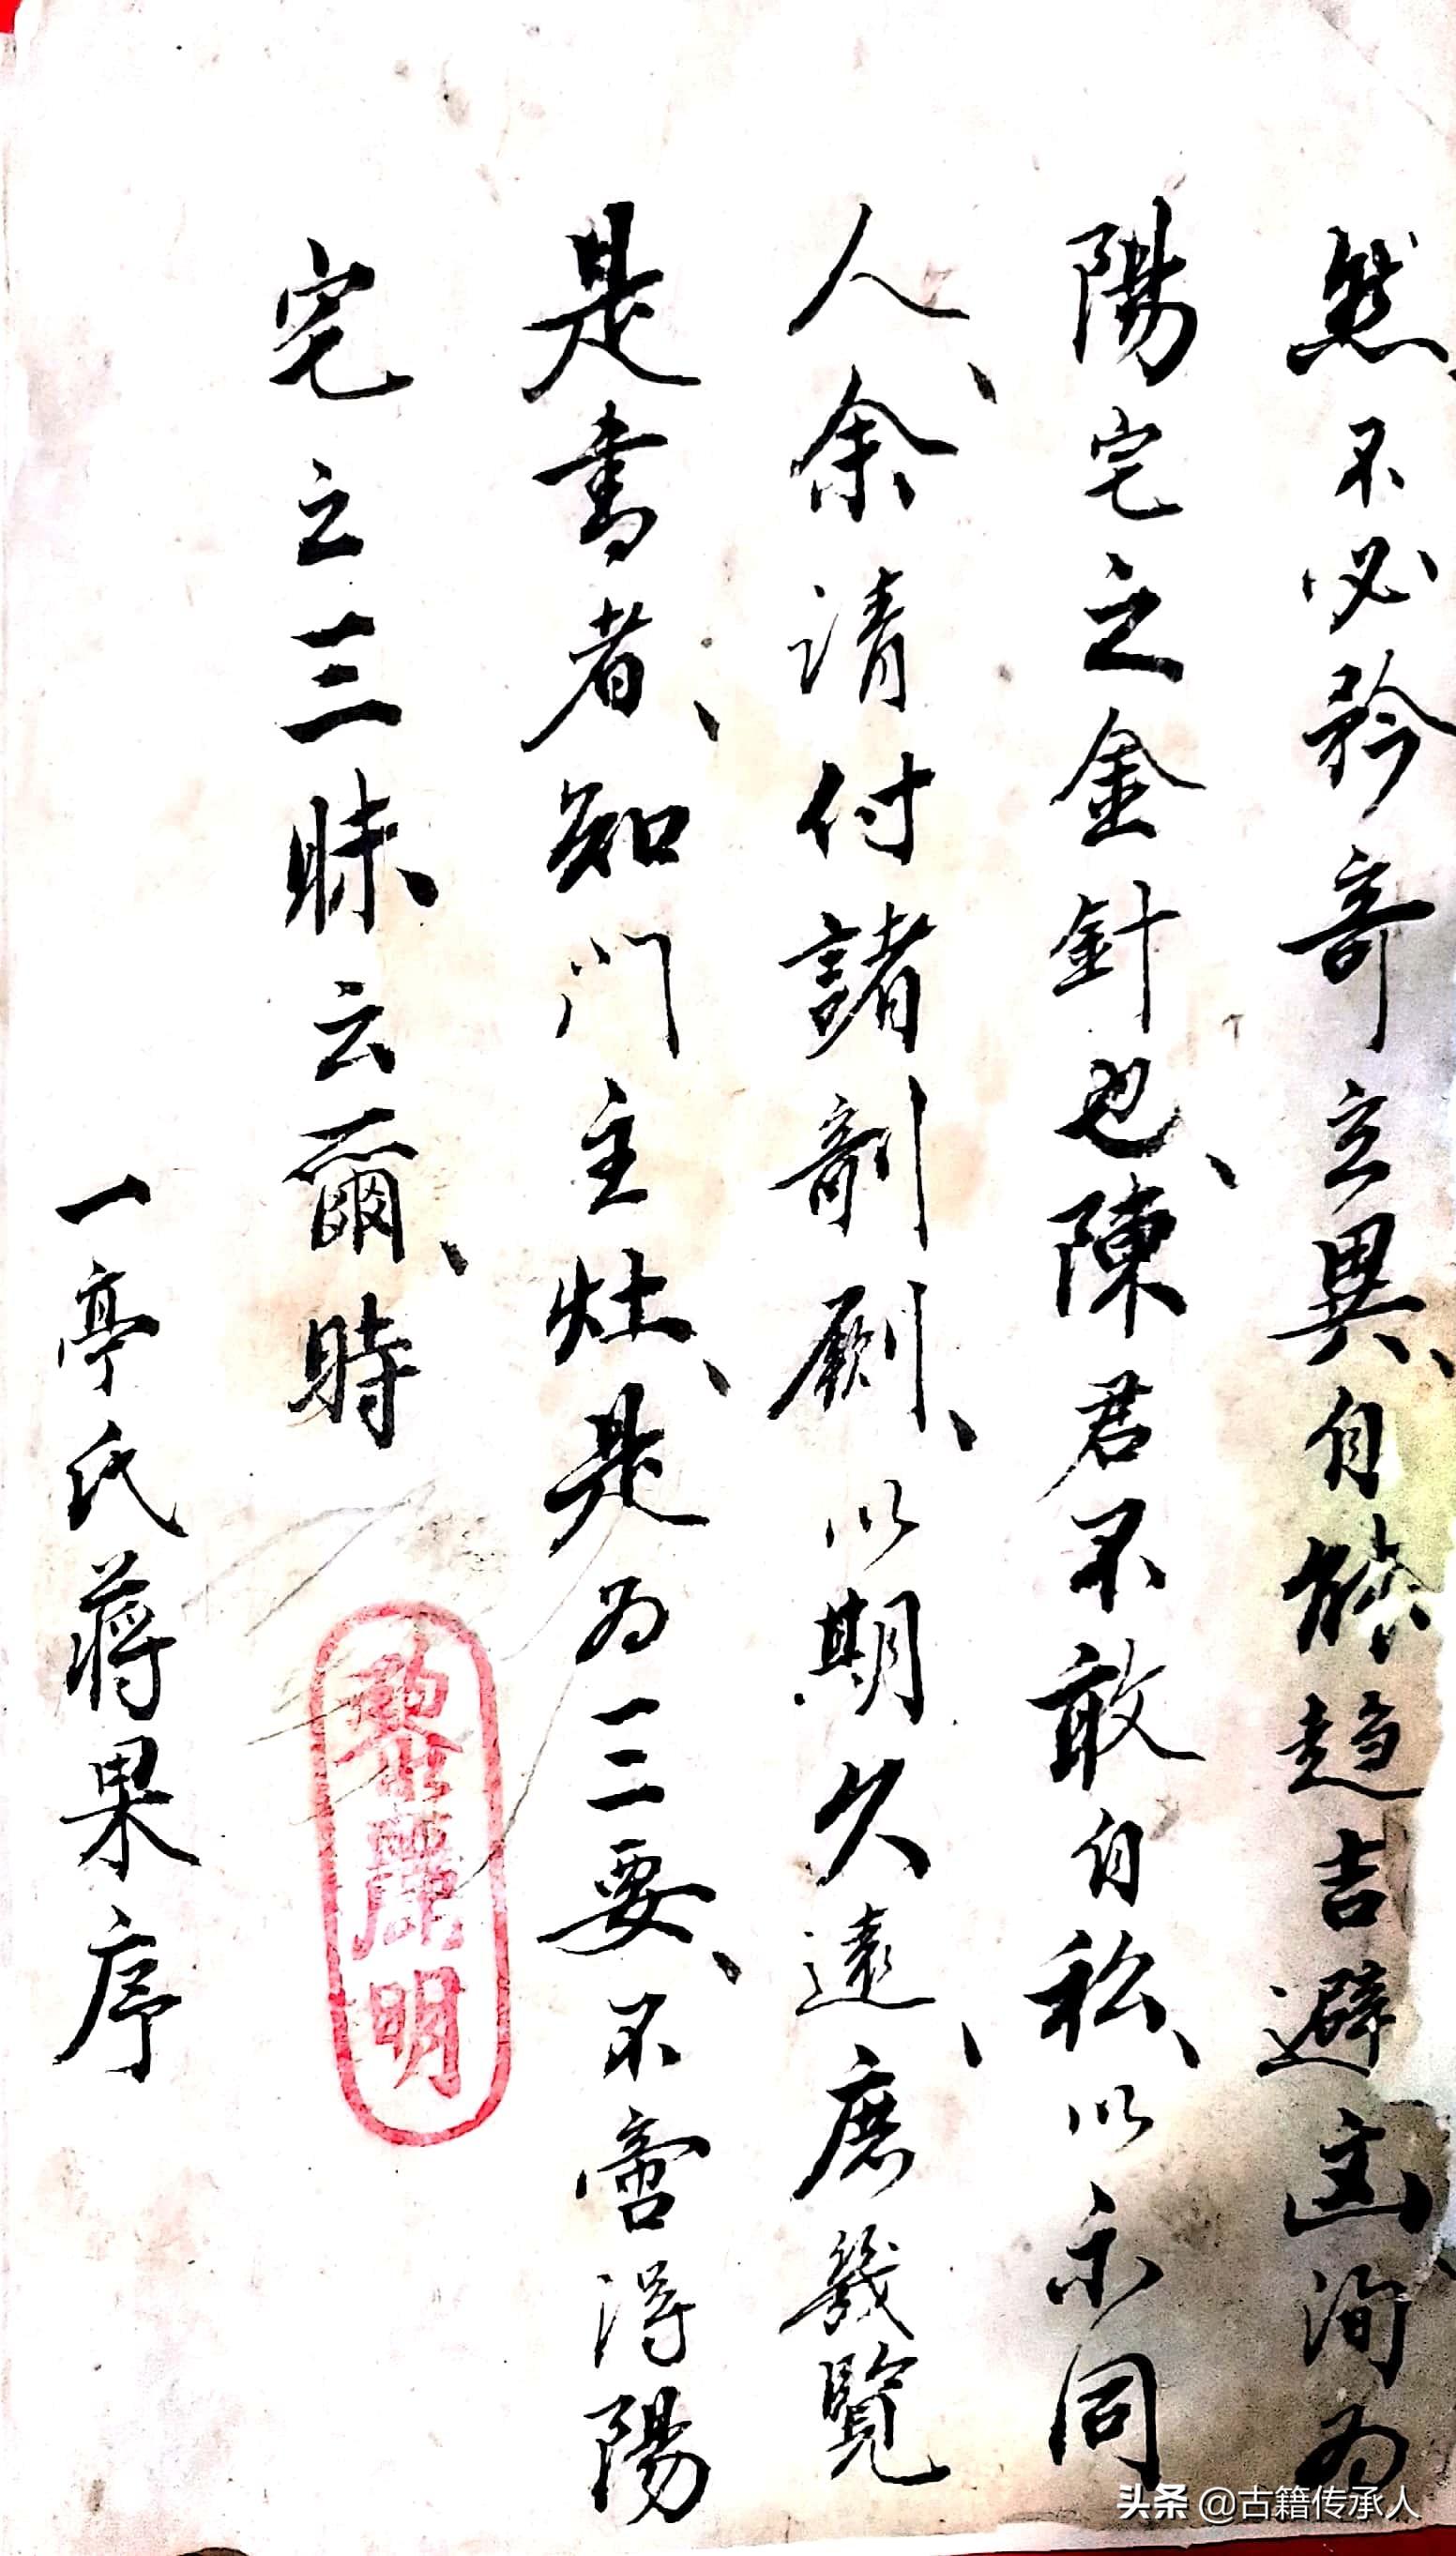 然不必矜奇立異、自能趋吉避凶、洵为
陽宅之金針也、陳君不敢自私、以示同
人、余請付諸剞劂、以期久遠、庶幾覽
是書者、知门主灶、是为三要、不啻得陽
宅之三昧云爾、時
黎麗明
一亭氏蔣果序
头条 @古籍传承人